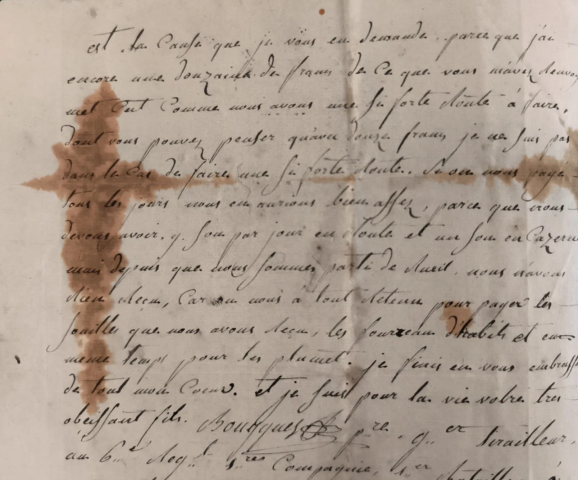 est la Cause que je vous en demande. parce que j'ai
encore une douzaine de franc de Ce que vous m'avez
met Comme nous avons une si forte Route à faire,
dont vous pouvez penser qu'avec douze franc je ne suis pas
dans le Cas de faire une si forte Route. Si on nous paye
tous les jours nous en aurions bien assez, parce que nous
devons avoir 9 sou par jour en Route et un sou en Cazerne
mai depuis que nous sommes parti de nous n'avons
Rien Reçu, Car on nous à tout Retenu pour payer les
que nous avons Reçu, les fourreau d'habits et en
meme temps pour les plumet. je finis en vous embrass
de tout mon Coeur. et je suis pour la vie votre tres
obeissant fils. Bousquet tirailleur,
au 6me Regt Compagnie, bataillon